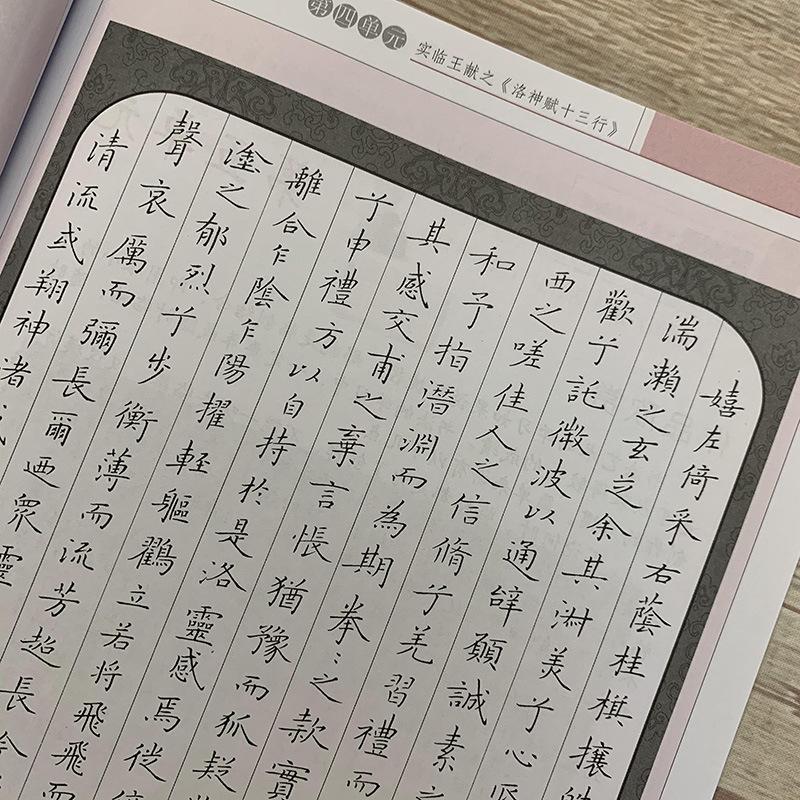 第四单元
实临王献之《洛神赋十三行》
嬉左倚采右蔭桂棋攘
湍瀨之玄芝余其淋美兮心
歡兮託微波以通辝願誠素之
西之嗟佳人之信脩兮羌習禮而
和予指潛淵而為期拳〻之款實
其感交甫之棄言悵猶豫而狐疑
兮申禮方以自持於是洛靈感焉徙
離合乍陰乍陽擢輕軀鶴立若將飛飛而
塗之郁烈兮步衡薄而流芳超長
聲哀厲而彌長爾迺眾靈
清流或翔神渚或